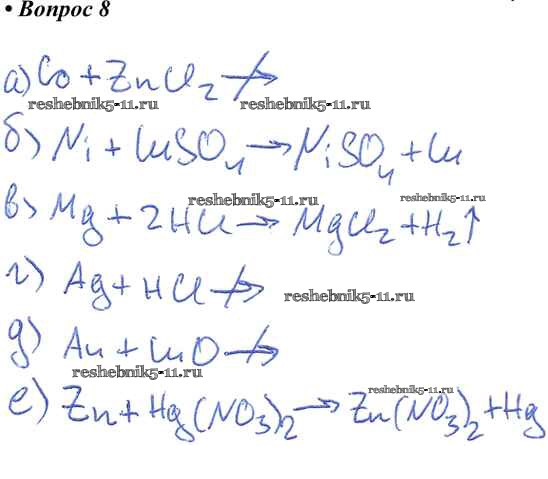 • Вопрос 8
а) Co + ZnCl₂ ↛
reshebnik5-11.ru reshebnik5-11.ru
б) Ni + CuSO₄ → NiSO₄ + Cu
reshebnik5-11.ru reshebnik5-11.ru
в) Mg + 2HCl → MgCl₂ + H₂↑
г) Ag + HCl ↛ reshebnik5-11.ru
д) Au + CuO ↛
reshebnik5-11.ru reshebnik5-11.ru
е) Zn + Hg(NO₃)₂ → Zn(NO₃)₂ + Hg